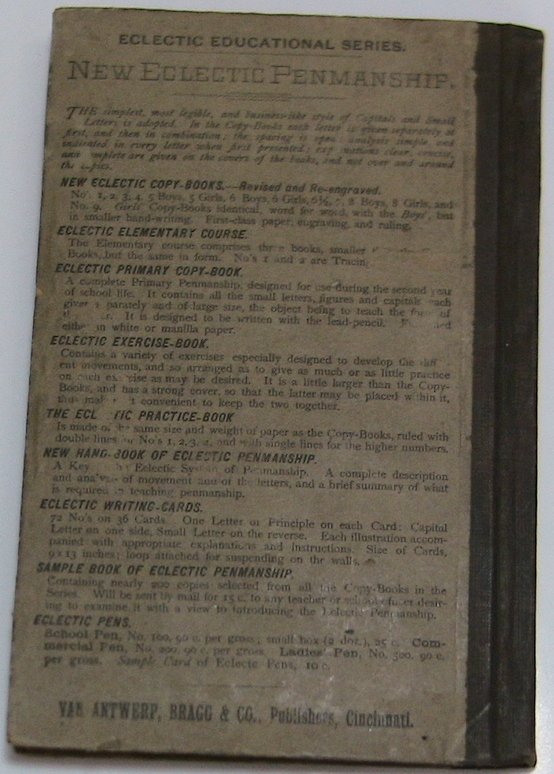 ECLECTIC EDUCATIONAL SERIES.
NEW ECLECTIC PENMANSHIP.
THE simplest, most legible, and business-like style of Capitals and Small
Letters is adopted. In the Copy-Books each letter is given separately at
first, and then in combination; the spacing is open; analysis simple, and
indicated in every letter when first presented; clear, concise,
and complete are given on the covers of the books, and not over and around
the copies.
NEW ECLECTIC COPY-BOOKS.—Revised and Re-engraved.
No's 1, 2, 3, 4, 5 Boys, 5 Girls, 6 Boys, 6 Girls, 6½, 7, 8 Boys, 8 Girls, and
No. 9. Girls' Copy-Books identical, word for word, with the Boys', but
in smaller hand-writing. First-class paper, engraving, and ruling.
ECLECTIC ELEMENTARY COURSE.
The Elementary course comprises books, smaller
Books, but the same in form. No's 1 and 2 are
ECLECTIC PRIMARY COPY-BOOK.
A complete Primary Penmanship, designed for use during the second year
of school life. It contains all the small letters, figures and capitals each
given separately and of large size, the object being to teach the form of
It is designed to be written with the lead-pencil.
either in white or manilla paper.
ECLECTIC EXERCISE-BOOK.
Contains a variety of exercises especially designed to develop the
movements, and so arranged as to give as much or as little practice
on each exercise as may be desired. It is a little larger than the Copy-
Books, and has a strong cover, so that the latter may be placed within it,
it convenient to keep the two together.
THE ECLECTIC PRACTICE-BOOK
Is made of the same size and weight of paper as the Copy-Books, ruled with
double lines No's 1, 2, 3, 4, and with single lines for the higher numbers.
NEW HAND-BOOK OF ECLECTIC PENMANSHIP.
A Key Eclectic System of Penmanship. A complete description
and analysis of movement and of the letters, and a brief summary of what
is required in teaching penmanship.
ECLECTIC WRITING-CARDS.
72 No's on 36 Cards. One Letter or Principle on each Card: Capital
Letter on one side, Small Letter on the reverse. Each illustration accom-
panied with appropriate explanations and instructions. Size of Cards,
9x13 inches; loop attached for suspending on the walls.
SAMPLE BOOK OF ECLECTIC PENMANSHIP.
Containing nearly 200 copies selected from all the Copy-Books in the
Series. Will be sent by mail for 15 c. to any teacher or school officer desir-
ing to examine it with a view to introducing the Eclectic Penmanship.
ECLECTIC PENS.
School Pen, No. 100, 90 c. per gross; small box (2 doz.), 25 c. Com-
mercial Pen, No. 200, 90 c. per gross. Ladies' Pen, No. 300, 90 c.
per gross. Sample Card of Eclectic Pens, 10 c.
VAN ANTWERP, BRAGG & CO., Publishers, Cincinnati.